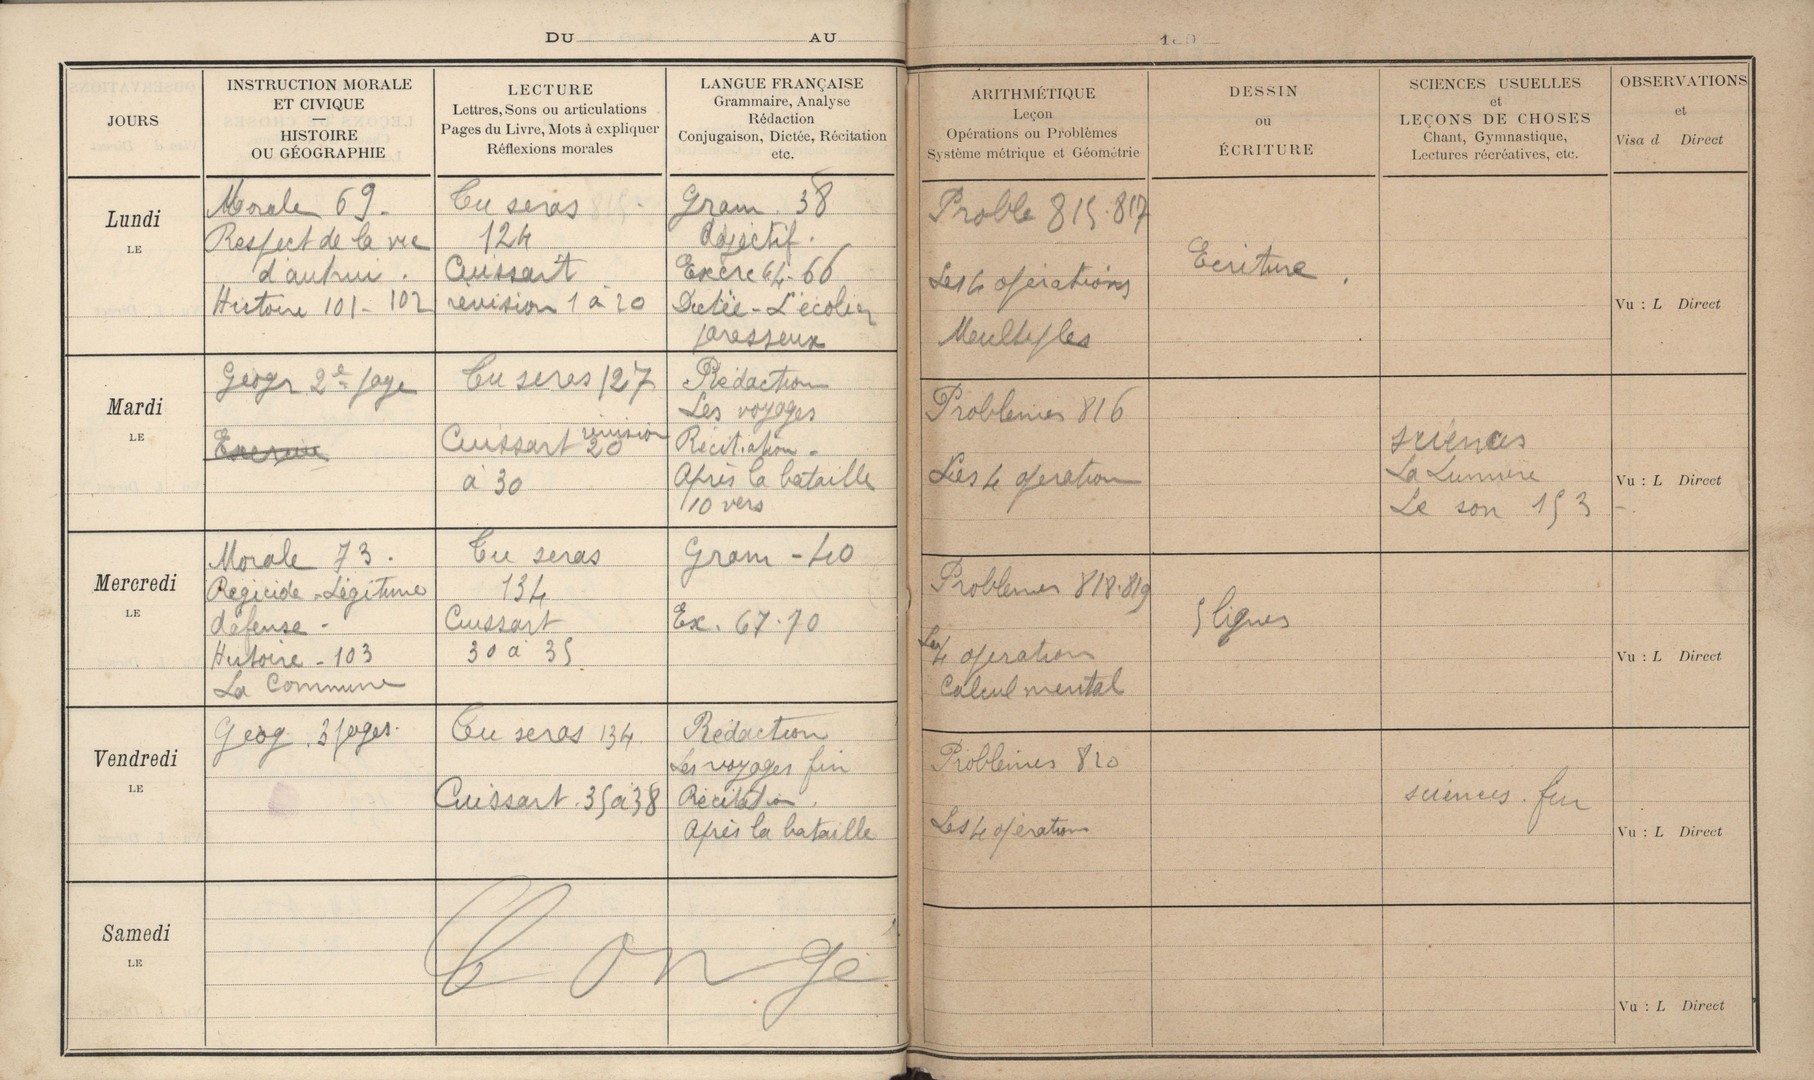 DU AU
JOURS
INSTRUCTION MORALE
ET CIVIQUE
—
HISTOIRE
OU GÉOGRAPHIE
LECTURE
Lettres, Sons ou articulations
Pages du Livre, Mots à expliquer
Réflexions morales
LANGUE FRANÇAISE
Grammaire, Analyse
Rédaction
Conjugaison, Dictée, Récitation
etc.
ARITHMÉTIQUE
Leçon
Opérations ou Problèmes
Système métrique et Géométrie
DESSIN
OU
ÉCRITURE
SCIENCES USUELLES
et
LEÇONS DE CHOSES
Chant, Gymnastique,
Lectures récréatives, etc.
OBSERVATIONS
et
Visa d Direct
Lundi
LE
Morale 69 -
Respect de la vie
d'autrui .
Histoire 101 - 102
Tu seras
124
Cuissart
révision 1 à 20
Gram . 38
Adjectif .
Exerc 64 - 66
Dictée - L'écolier
paresseux
Proble 815 . 817
Les 4 opérations
Multiples
Ecriture .
Vu : L Direct
Mardi
LE
Géogr 2e page
Tu seras 127
Cuissart révision 20
à 30
Rédaction
Les voyages
Récitation -
Après la bataille
10 vers
Problèmes 816
Les 4 opération
sciences
La Lumière
Le son 153
Vu : L Direct
Mercredi
LE
Morale 73 -
Régicide - Légitime
défense -
Histoire - 103
La Commune
Tu seras
134
Cuissart
30 à 35
Gram - 40
Ex . 67 . 70
Problèmes 818 . 819
Les 4 operation
Calcul mental
5 lignes
Vu : L Direct
Vendredi
LE
Géog . 3 pages .
Tu seras 134
Cuissart . 35 à 38
Rédaction
Les voyages fin
Récitation .
Après la bataille
Problèmes 820
Les 4 opération
sciences . fin
Vu : L Direct
Samedi
LE
Congé
Vu : L Direct